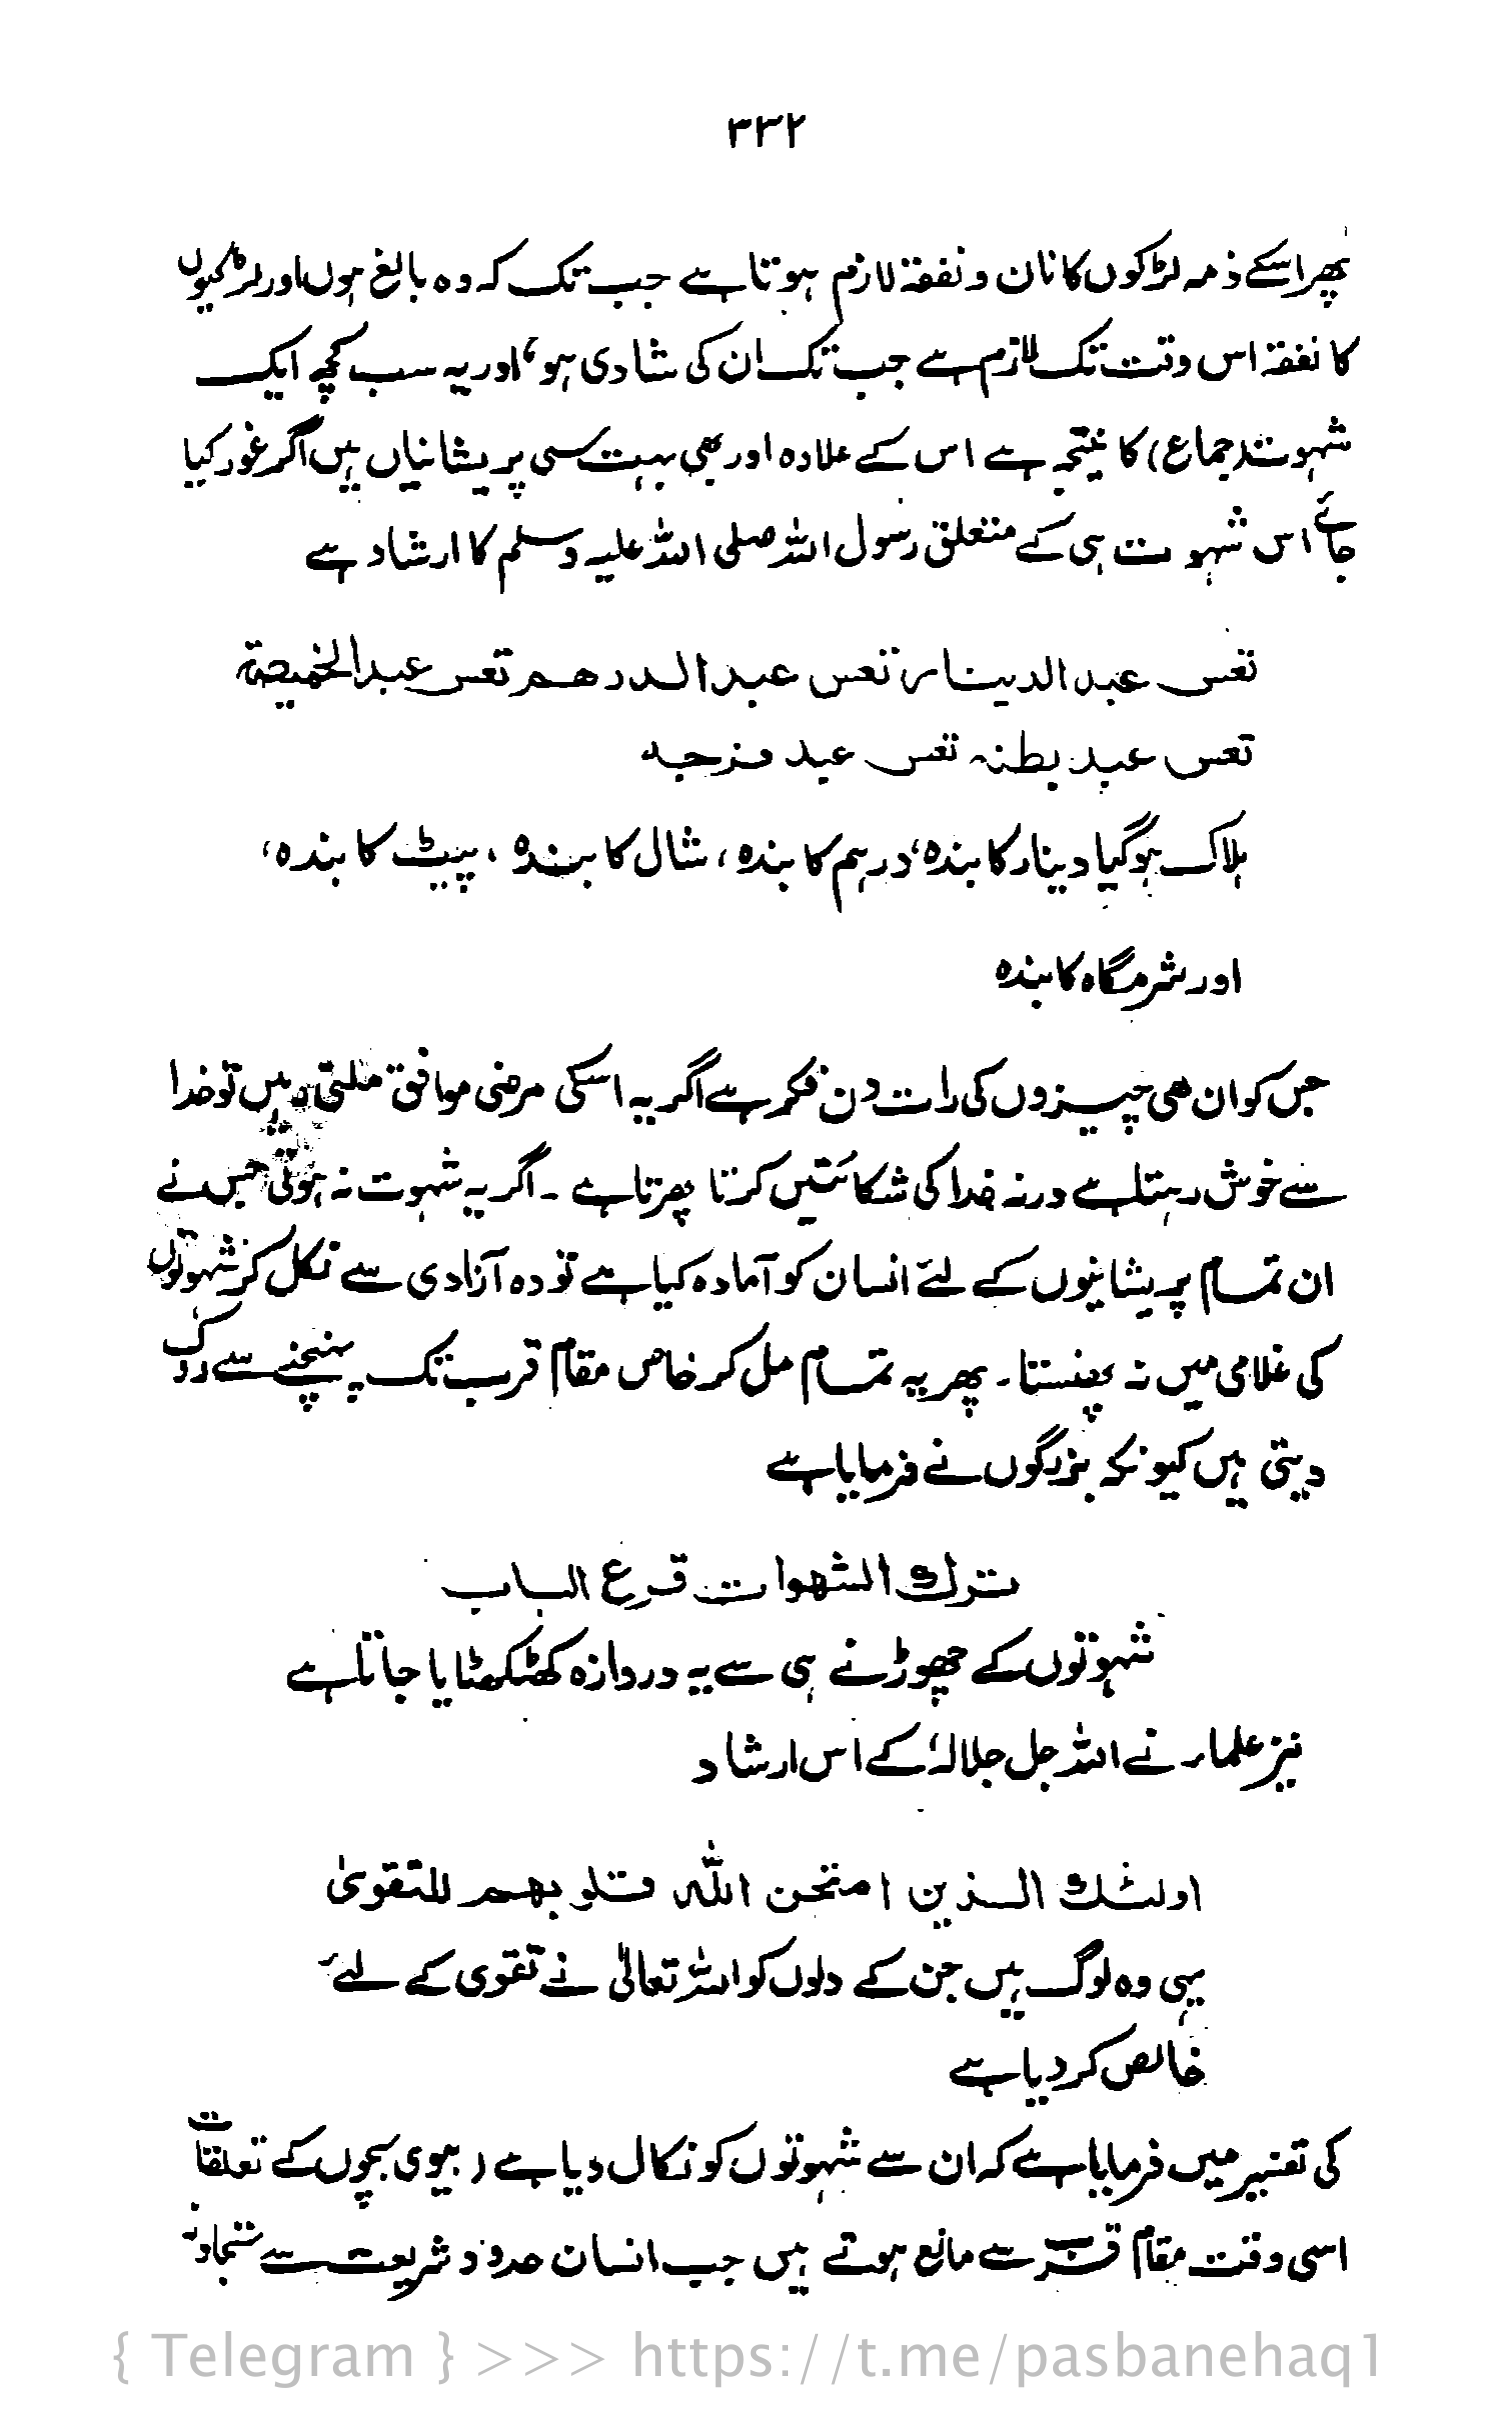 ۳۳۲
پھر اسکے ذمہ لڑکوں کا نان و نفقہ لازم ہوتا ہے جب تک کہ وہ بالغ ہوں اور لڑکیوں
کا نفقہ اس وقت تک لازم ہے جب تک ان کی شادی ہو، اور یہ سب کچھ ایک
شہوت (جماع) کا نتیجہ ہے اس کے علاوہ اور بھی بہت سی پریشانیاں ہیں اگر غور کیا
جائے اس شہوت ہی کے متعلق رسول اللہ صلی اللہ علیہ وسلم کا ارشاد ہے
تعس عبد الدینار تعس عبد الدرھم تعس عبد الخمیصۃ
تعس عبد بطنہ تعس عبد فرجہ
ہلاک ہوگیا دینار کا بندہ، درہم کا بندہ، شال کا بندہ، پیٹ کا بندہ،
اور شرمگاہ کا بندہ
جس کو ان ھی چیزوں کی رات دن فکر ہے اگر یہ اسکی مرضی موافق ملتی رہیں تو خدا
سے خوش رہتا ہے ورنہ خدا کی شکائتیں کرتا پھرتا ہے ۔ اگر یہ شہوت نہ ہوتی جس نے
ان تمام پریشانیوں کے لئے انسان کو آمادہ کیا ہے تو وہ آزادی سے نکل کر شہوتوں
کی غلامی میں نہ پھنستا ۔ پھر یہ تمام مل کر خاص مقام قرب تک پہنچنے سے روک
دیتی ہیں کیونکہ بزرگوں نے فرمایا ہے
ترك الشھوات قرع الباب
شہوتوں کے چھوڑنے ہی سے یہ دروازہ کھٹکھٹایا جاتا ہے
نیز علماء نے اللہ جل جلالہٗ کے اس ارشاد
اولئك الذین امتحن اللّٰہ قلوبھم للتقویٰ
یہی وہ لوگ ہیں جن کے دلوں کو اللہ تعالیٰ نے تقوی کے لئے
خالص کر دیا ہے
کی تفسیر میں فرمایا ہے کہ ان سے شہوتوں کو نکال دیا ہے ( بیوی بچوں کے تعلقات
اسی وقت مقام قرب سے مانع ہوتے ہیں جب انسان حدود شریعت سے متجاوز
{ Telegram } >>> https://t.me/pasbanehaq1